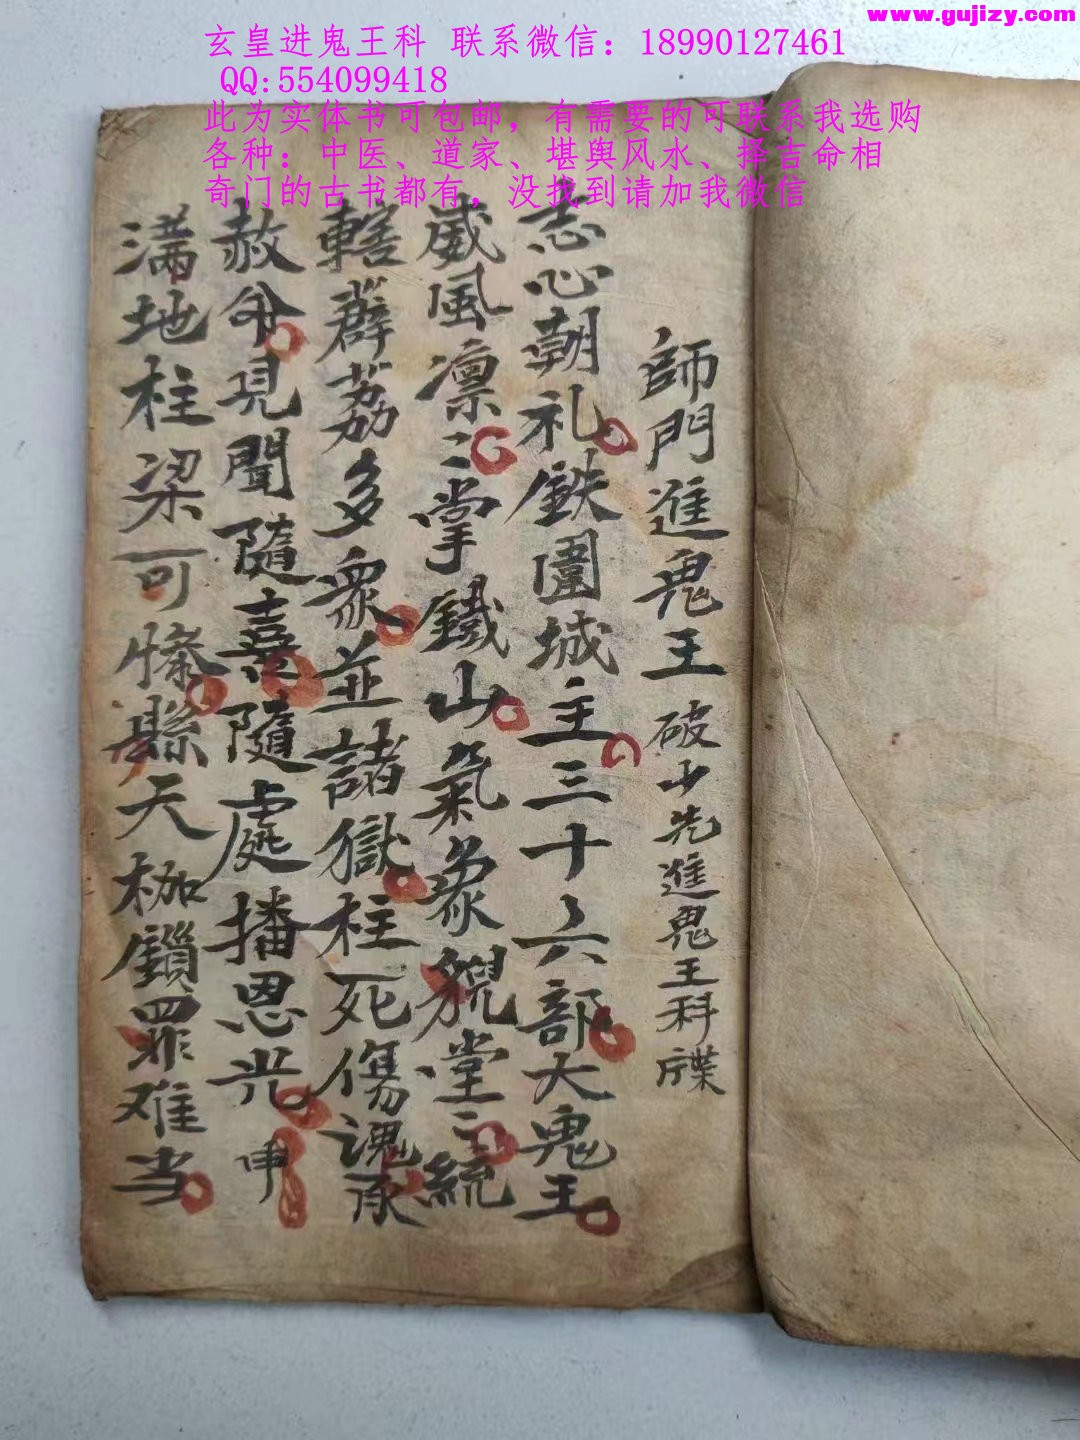 www.gujizy.com
玄皇进鬼王科 联系微信：18990127461
QQ:554099418
此为实体书可包邮，有需要的可联系我选购
各种：中医、道家、堪舆风水、择吉命相
奇门的古书都有，没找到请加我微信
師門進鬼王 破少先進鬼王科牒
志心朝礼鉄圍城主三十六部大鬼王
威風凛〻掌鐵山氣象貌堂〻統
轄薜荔多衆並諸獄枉死傷魂承
赦令見聞隨喜隨處播恩光 申
满地柱梁可惨縣天枷鎖罪难当